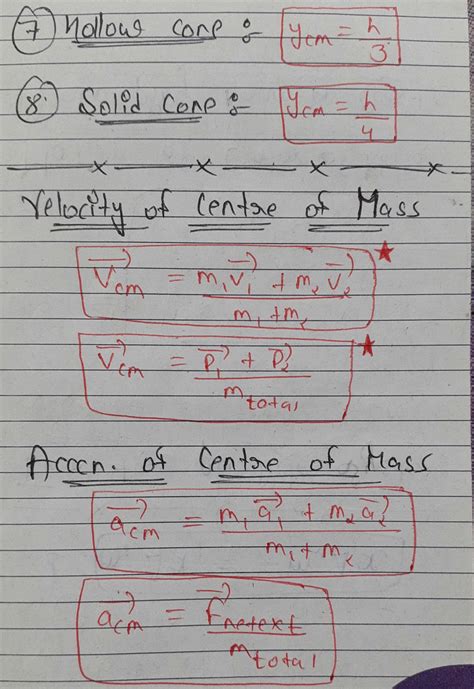 7 Hollow Cone :- y_cm = h/3
8. Solid Cone :- y_cm = h/4
Velocity of Centre of Mass
V⃗_cm = (m₁V⃗₁ + m₂V⃗₂)/(m₁+m₂)
V⃗_cm = (P⃗₁ + P⃗₂)/m_total
Acccn. of Centre of Mass
a⃗_cm = (m₁a⃗₁ + m₂a⃗₂)/(m₁+m₂)
a⃗_cm = F⃗_netext/m_total